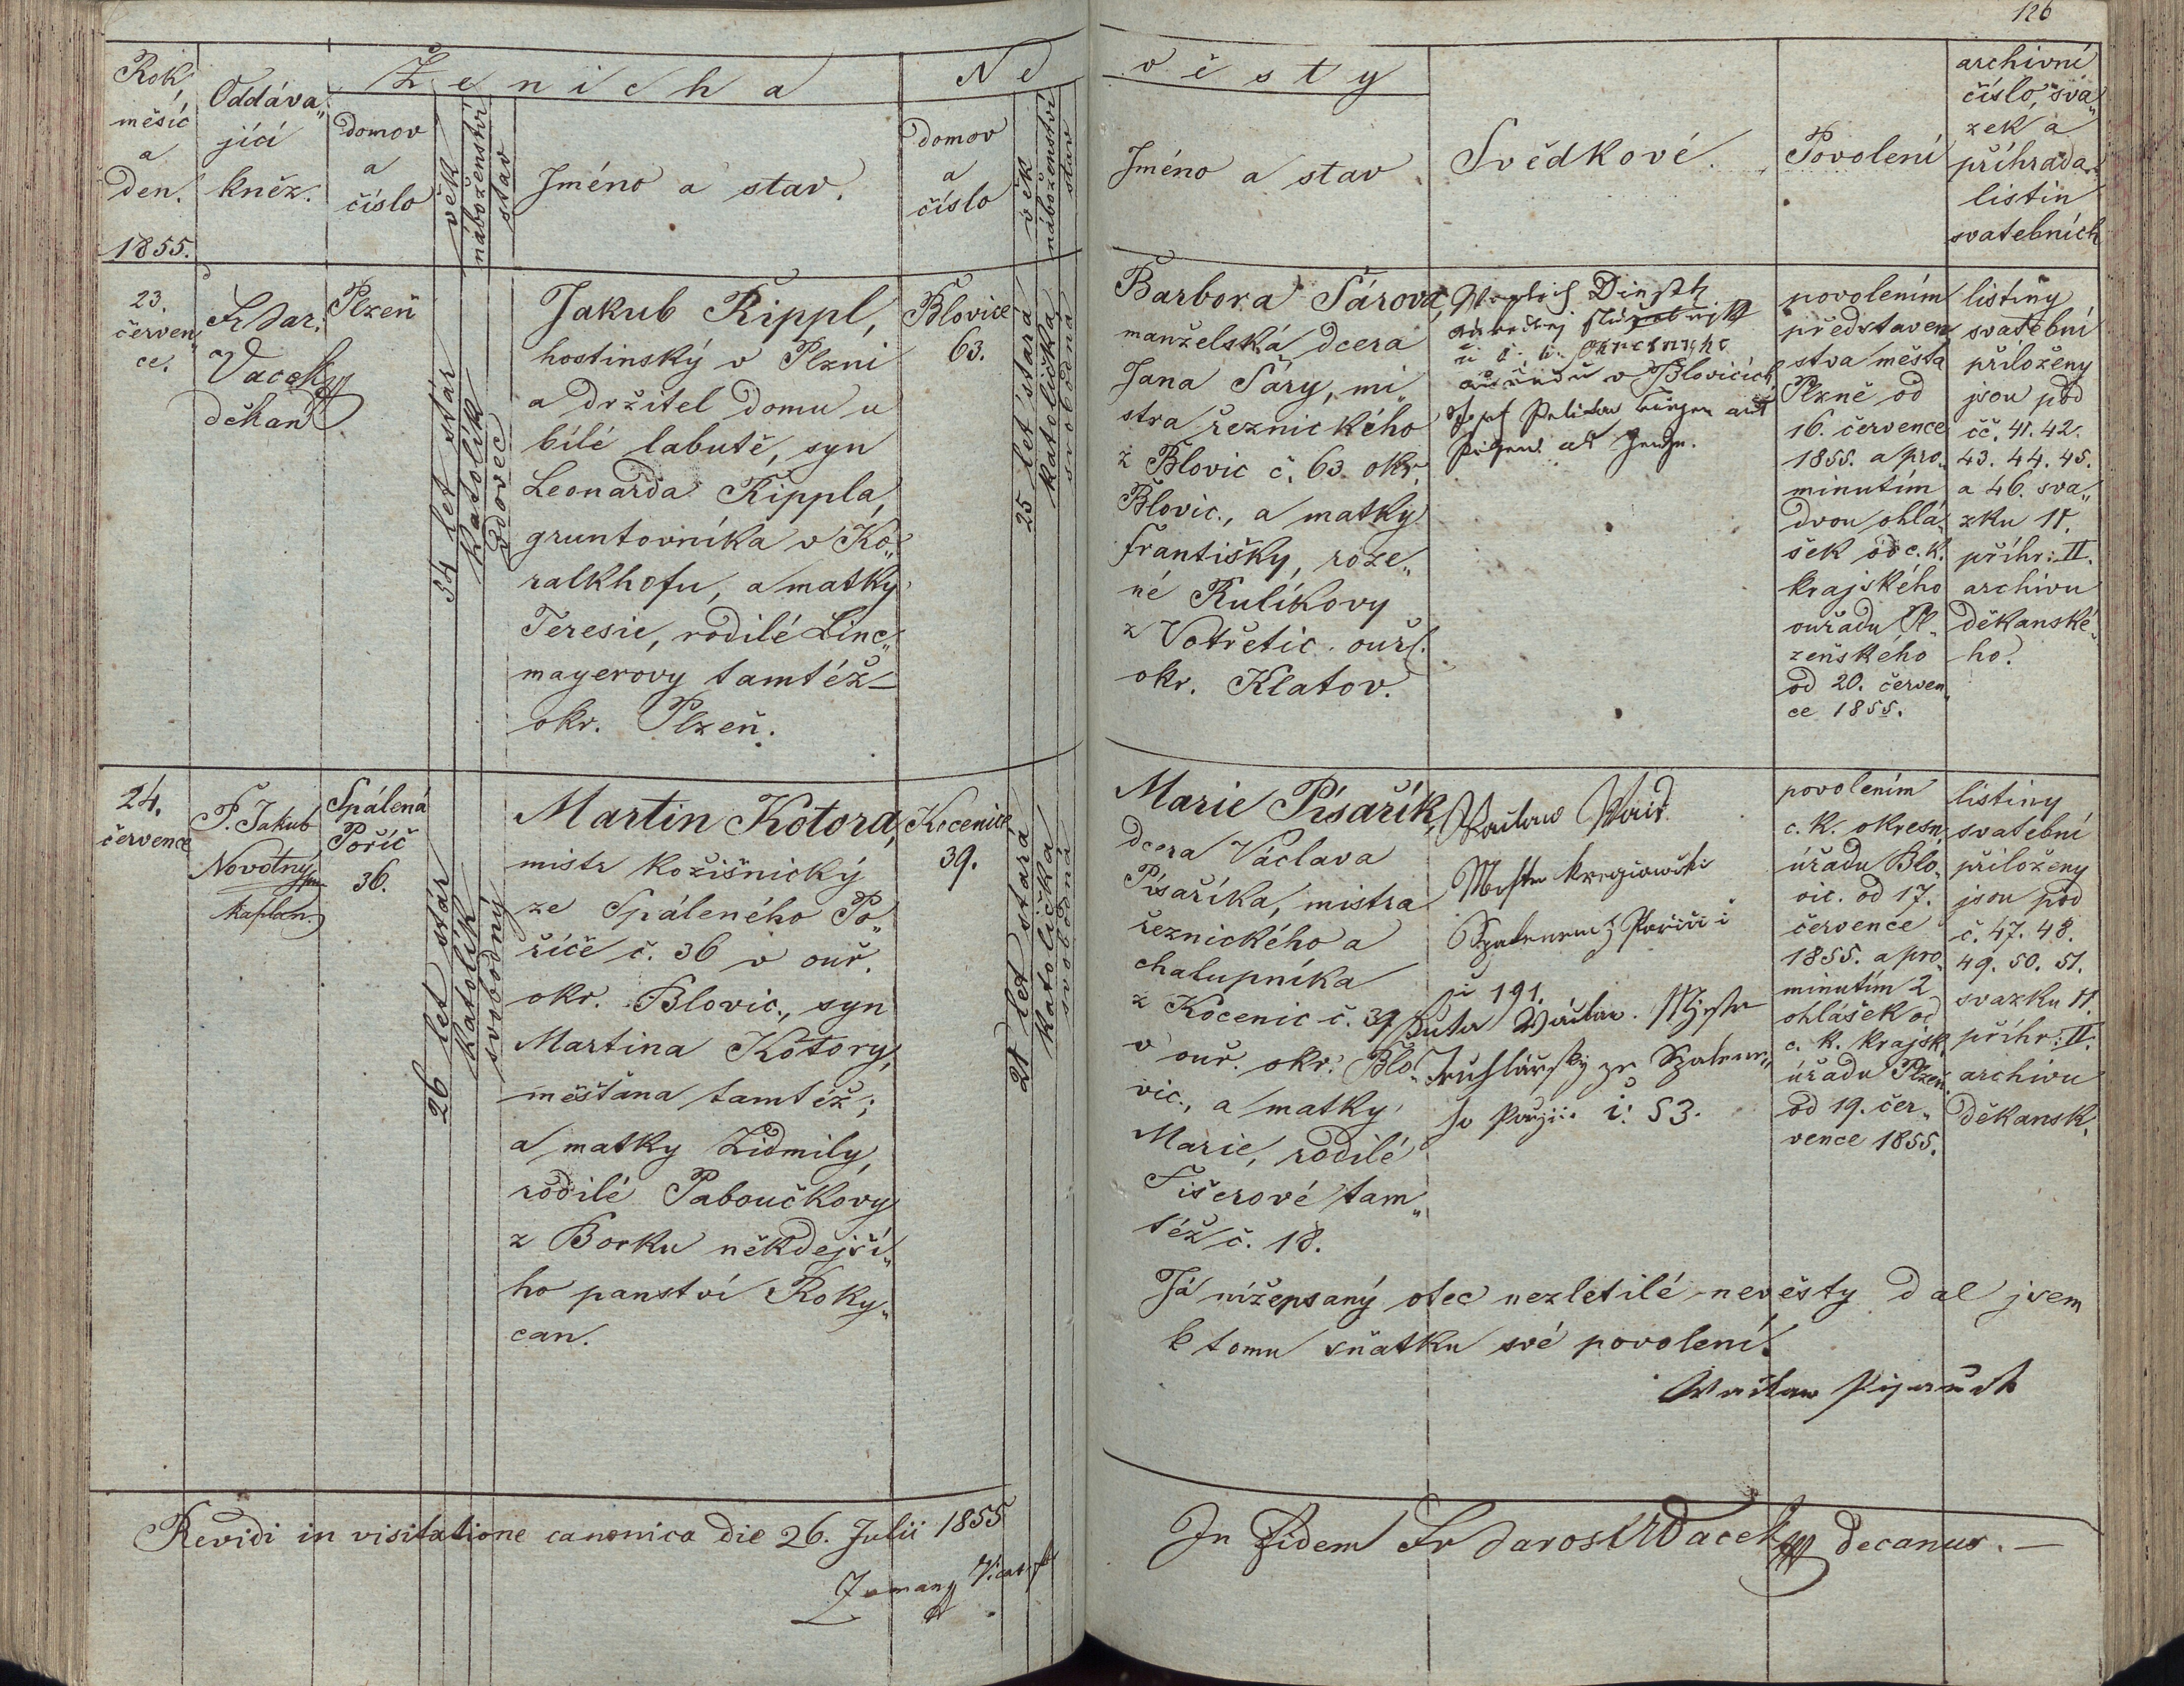 126
Rok,
měsíc
a
den.
1855.
Oddáva„
jící
kněz.
Ženicha
domov
a
číslo
věk
náboženství
stav
Jméno a stav.
Ne
domov
a
číslo
věk
náboženství
stav
věsty
Jméno a stav
Svědkové.
Povolení
archivní
číslo, sva„
zek a
příhrada
listin
svatebních
23.
červen„
ce.
Fr Jar.
Vacek
děkan
Plzeň
34 let stár
katolík
vdovec
Jakub Rippl,
hostinský v Plzni
a držitel domu u
bílé labutě, syn
Leonarda Rippla,
gruntovníka v Ko„
ralkhofu, a matky
Teresie, rodilé Linc„
mayerovy tamtéž
okr. Plzeň.
Blovice
63.
25 let stará
katolička
svobodná
Barbora Sárova,
manželská dcera
Jana Sáry, mi„
stra řeznického
z Blovic č. 63. okr.
Blovic., a matky
Františky, roze„
né Kulíkovy
z Votřetic. ouř.
okr. Klatov.
v Blovicích
povolením
představen„
stva města
Plzně od
16. července
1855. a pro„
minutím
dvou ohlá„
šek od c. k.
krajského
ouřadu Pl„
zeňského
od 20. červen„
ce 1855.
listiny
svatební
přiloženy
jsou pod
čč. 41. 42.
43. 44. 45.
a 46. sva„
zku 11.
příhr: II.
archivu
děkanské„
ho.
24.
července
P. Jakub
Novotný
kaplan.
Spálená
Poříč
36.
26 let stár
katolík
svobodný
Martin Kotora,
mistr kožišnický
ze Spáleného Po„
říče č. 36 v ouř.
okr. Blovic., syn
Martina Kotory,
měšťana tamtéž;
a matky Lidmily,
rodilé Paboučkovy
z Borku někdejší„
ho panství Roky„
can.
Kocenice
39.
21 let stará
katolička
svobodná
Marie Písařík,
dcera Václava
Písaříka, mistra
řeznického a
chalupníka
z Kocenic č. 39
v ouř. okr. Blo„
vic., a matky
Marie, rodilé
Fišerové tam„
též č. 18.
č 191.
č: 53.
povolením
c. k. okresn.
úřadu Blo„
vic. od 17.
července
1855. a pro„
minutím 2
ohlášek od
c. k. krajsk.
úřadu Plzeň.
od 19. čer„
vence 1855.
listiny
svatební
přiloženy
jsou pod
č. 47. 48.
49. 50. 51.
svazku 11.
příhr: II.
archivu
děkansk.
Já nížepsaný otec nezletilé nevěsty dal jsem
k tomu sňatku své povolení.
Revidi in visitatione canonica die 26. Julii 1855
Zeman
In fidem Fr Jarosl Wacek decanus.